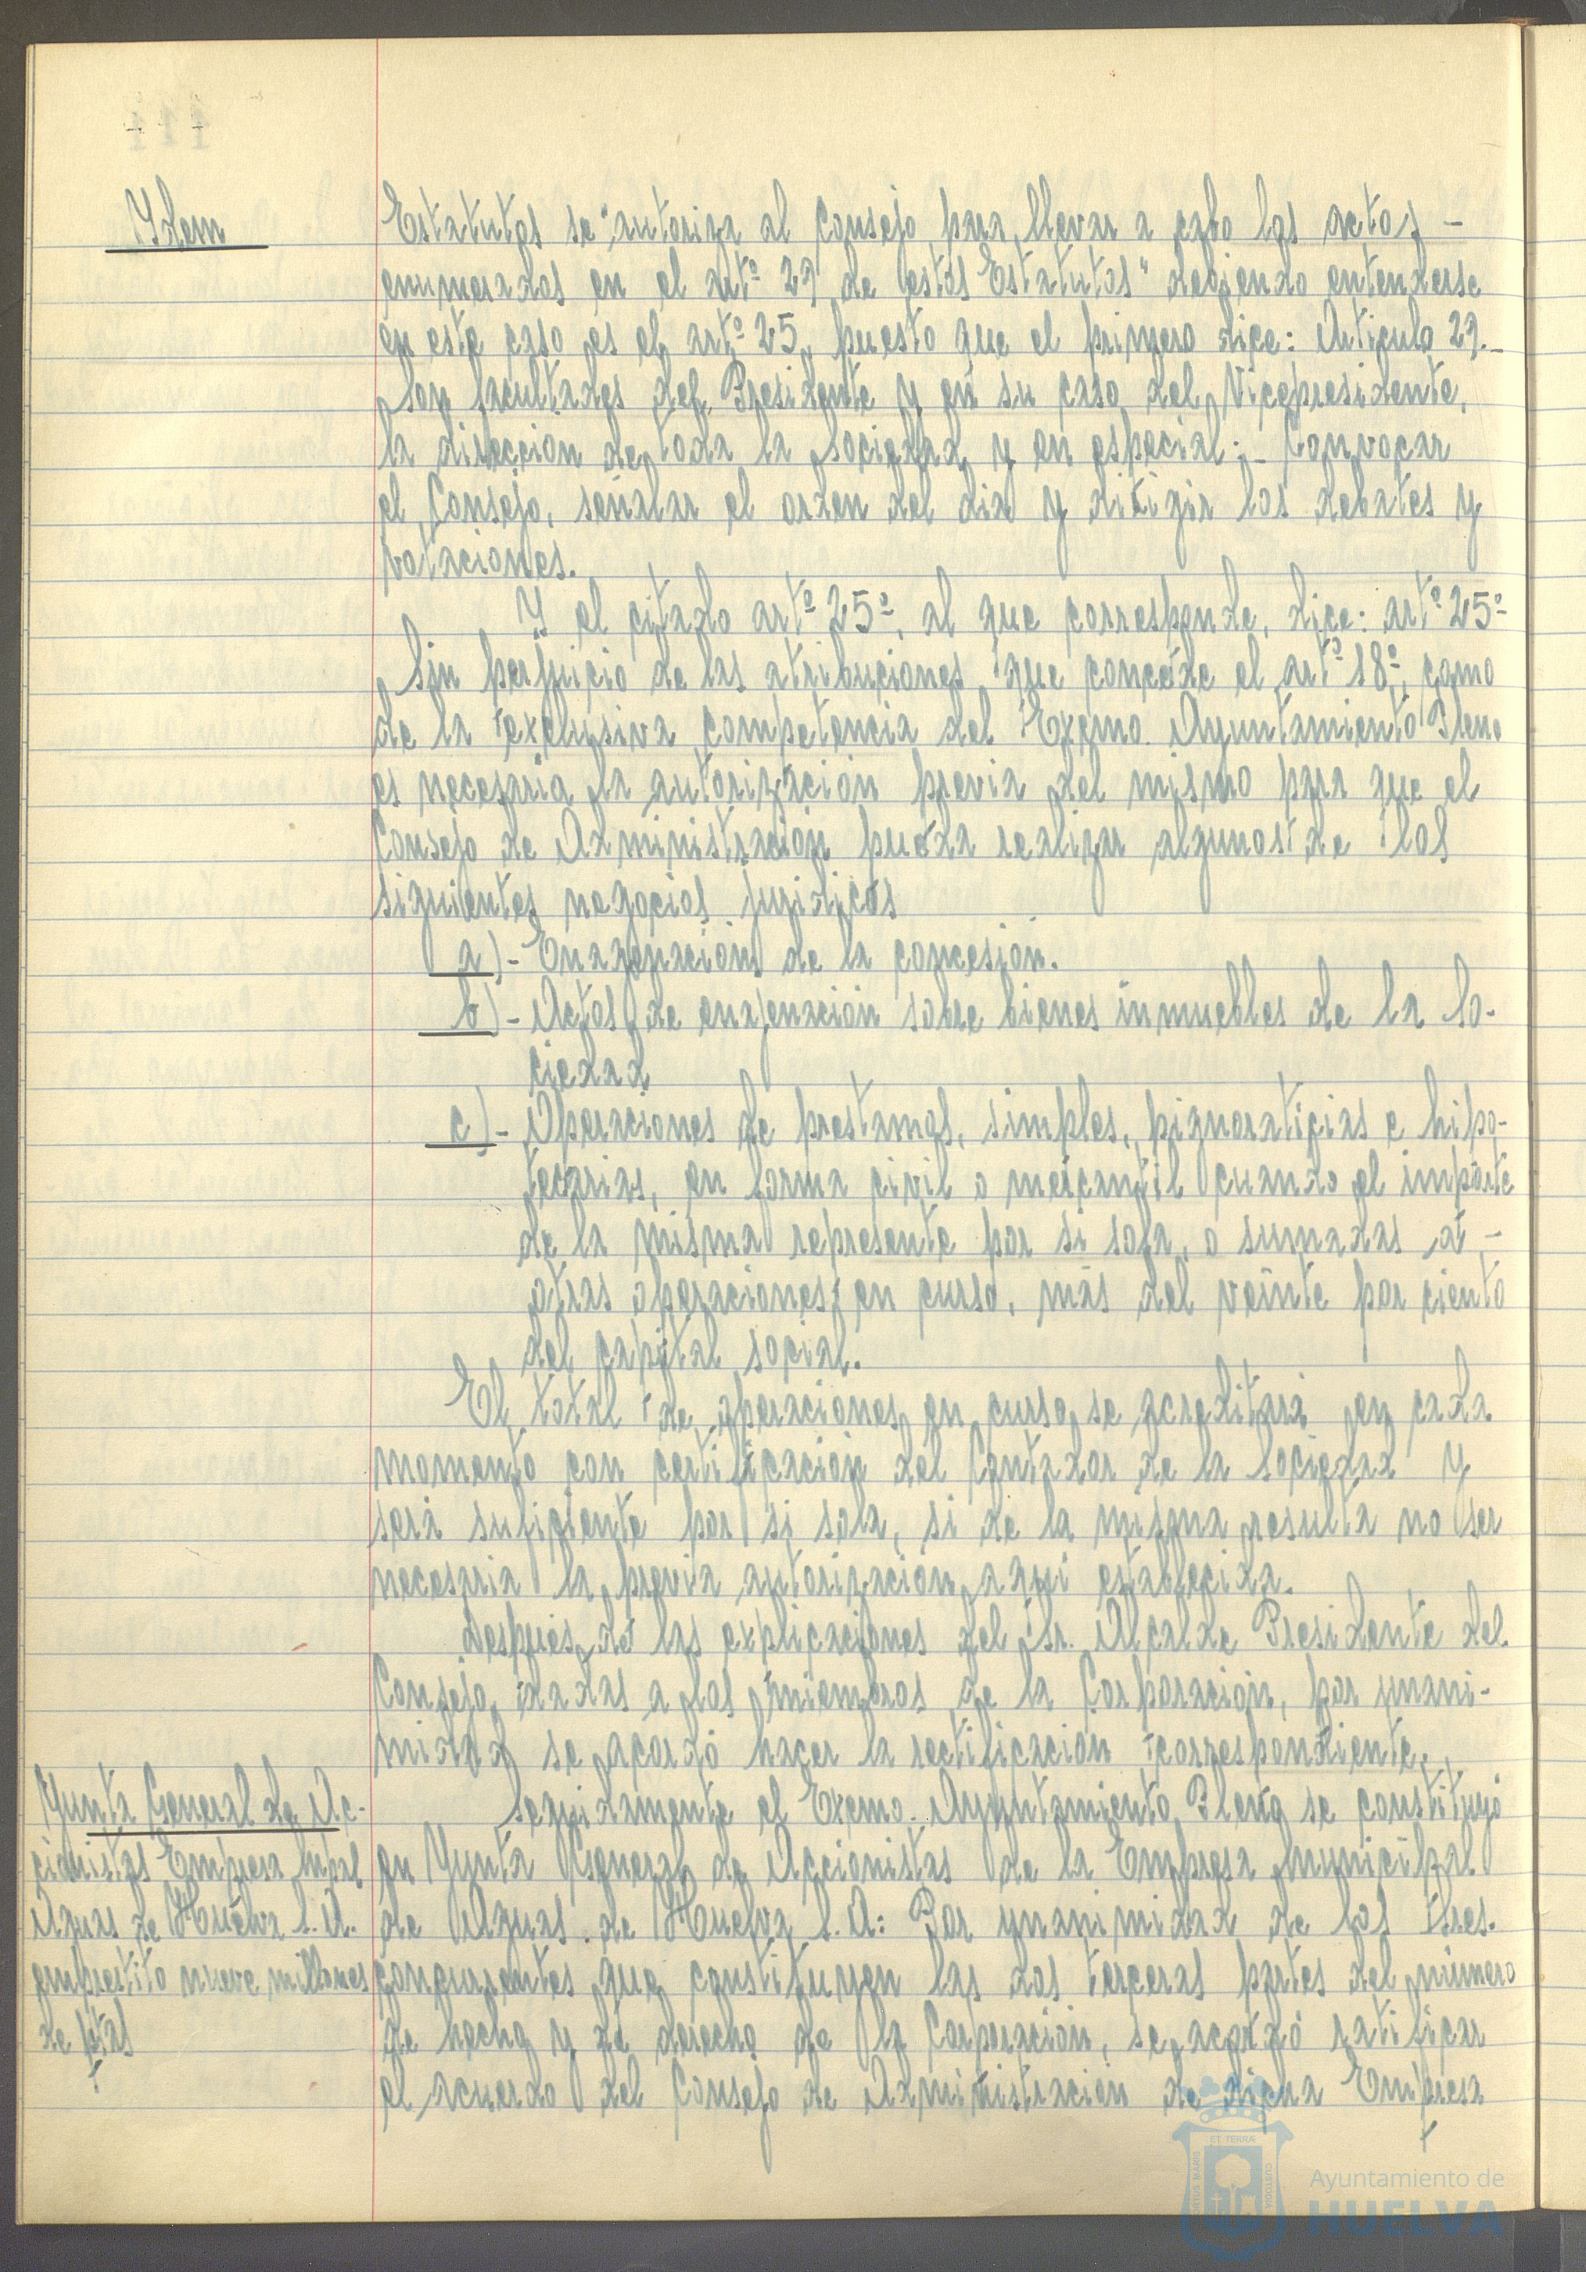 Ydem
Estatutos se "autoriza al Consejo para llevar a cabo los actos -
enumerados en el artº 29 de estos Estatutos" debiendo entenderse
en este caso es el artº 25, puesto que el primero dice: Articulo 29.-
Son facultades del Presidente y en su caso del Vicepresidente,
la dirección de toda la Sociedad y en especial:- Convocar
el Consejo, señalar el orden del dia y dirigir los debates y
votaciones.
Y el citado artº 25º, al que corresponde, dice: artº 25º
Sin perjuicio de las atribuciones que concede el artº 18º, como
de la exclusiva competencia del Excmo. Ayuntamiento Pleno
es necesaria la autorización previa del mismo para que el
Consejo de Administración pueda realizar algunos de los
siguientes negocios juridicos
a)- Enagenación de la concesión.
b)- Actos de enajenación sobre bienes inmuebles de la So-
ciedad
c)- Operaciones de prestamos, simples, pignoraticias e hipo-
tecarias, en forma civil o mercantil cuando el importe
de la misma represente por si sola, o sumadas a -
otras operaciones en curso, más del veinte por ciento
del capital social.
El total de operaciones en curso se acreditará en cada
momento con certificación del Contador de la Sociedad y
será suficiente por si sola, si de la misma resulta no ser
necesaria la previa autorización aqui establecida.
Despues de las explicaciones del Sr. Alcalde Presidente del
Consejo, dadas a los miembros de la Corporación, por unani-
midad se acordó hacer la rectificación correspondiente.
Yunta General de Ac-
cionistas Empresa Mpal
Aguas de Huelva S.A.
empréstito nueve millones
de ptas
Seguidamente el Excmo. Ayuntamiento Pleno se constituyó
en Yunta General de Accionistas de la Empresa Municipal
de Aguas de Huelva S.A: Por unanimidad de los Sres.
concurrentes que constituyen las dos terceras partes del número
de hecho y de derecho de la Corporación, se acordó ratificar
el acuerdo del Consejo de Administración de dicha Empresa
Ayuntamiento de
HUELVA